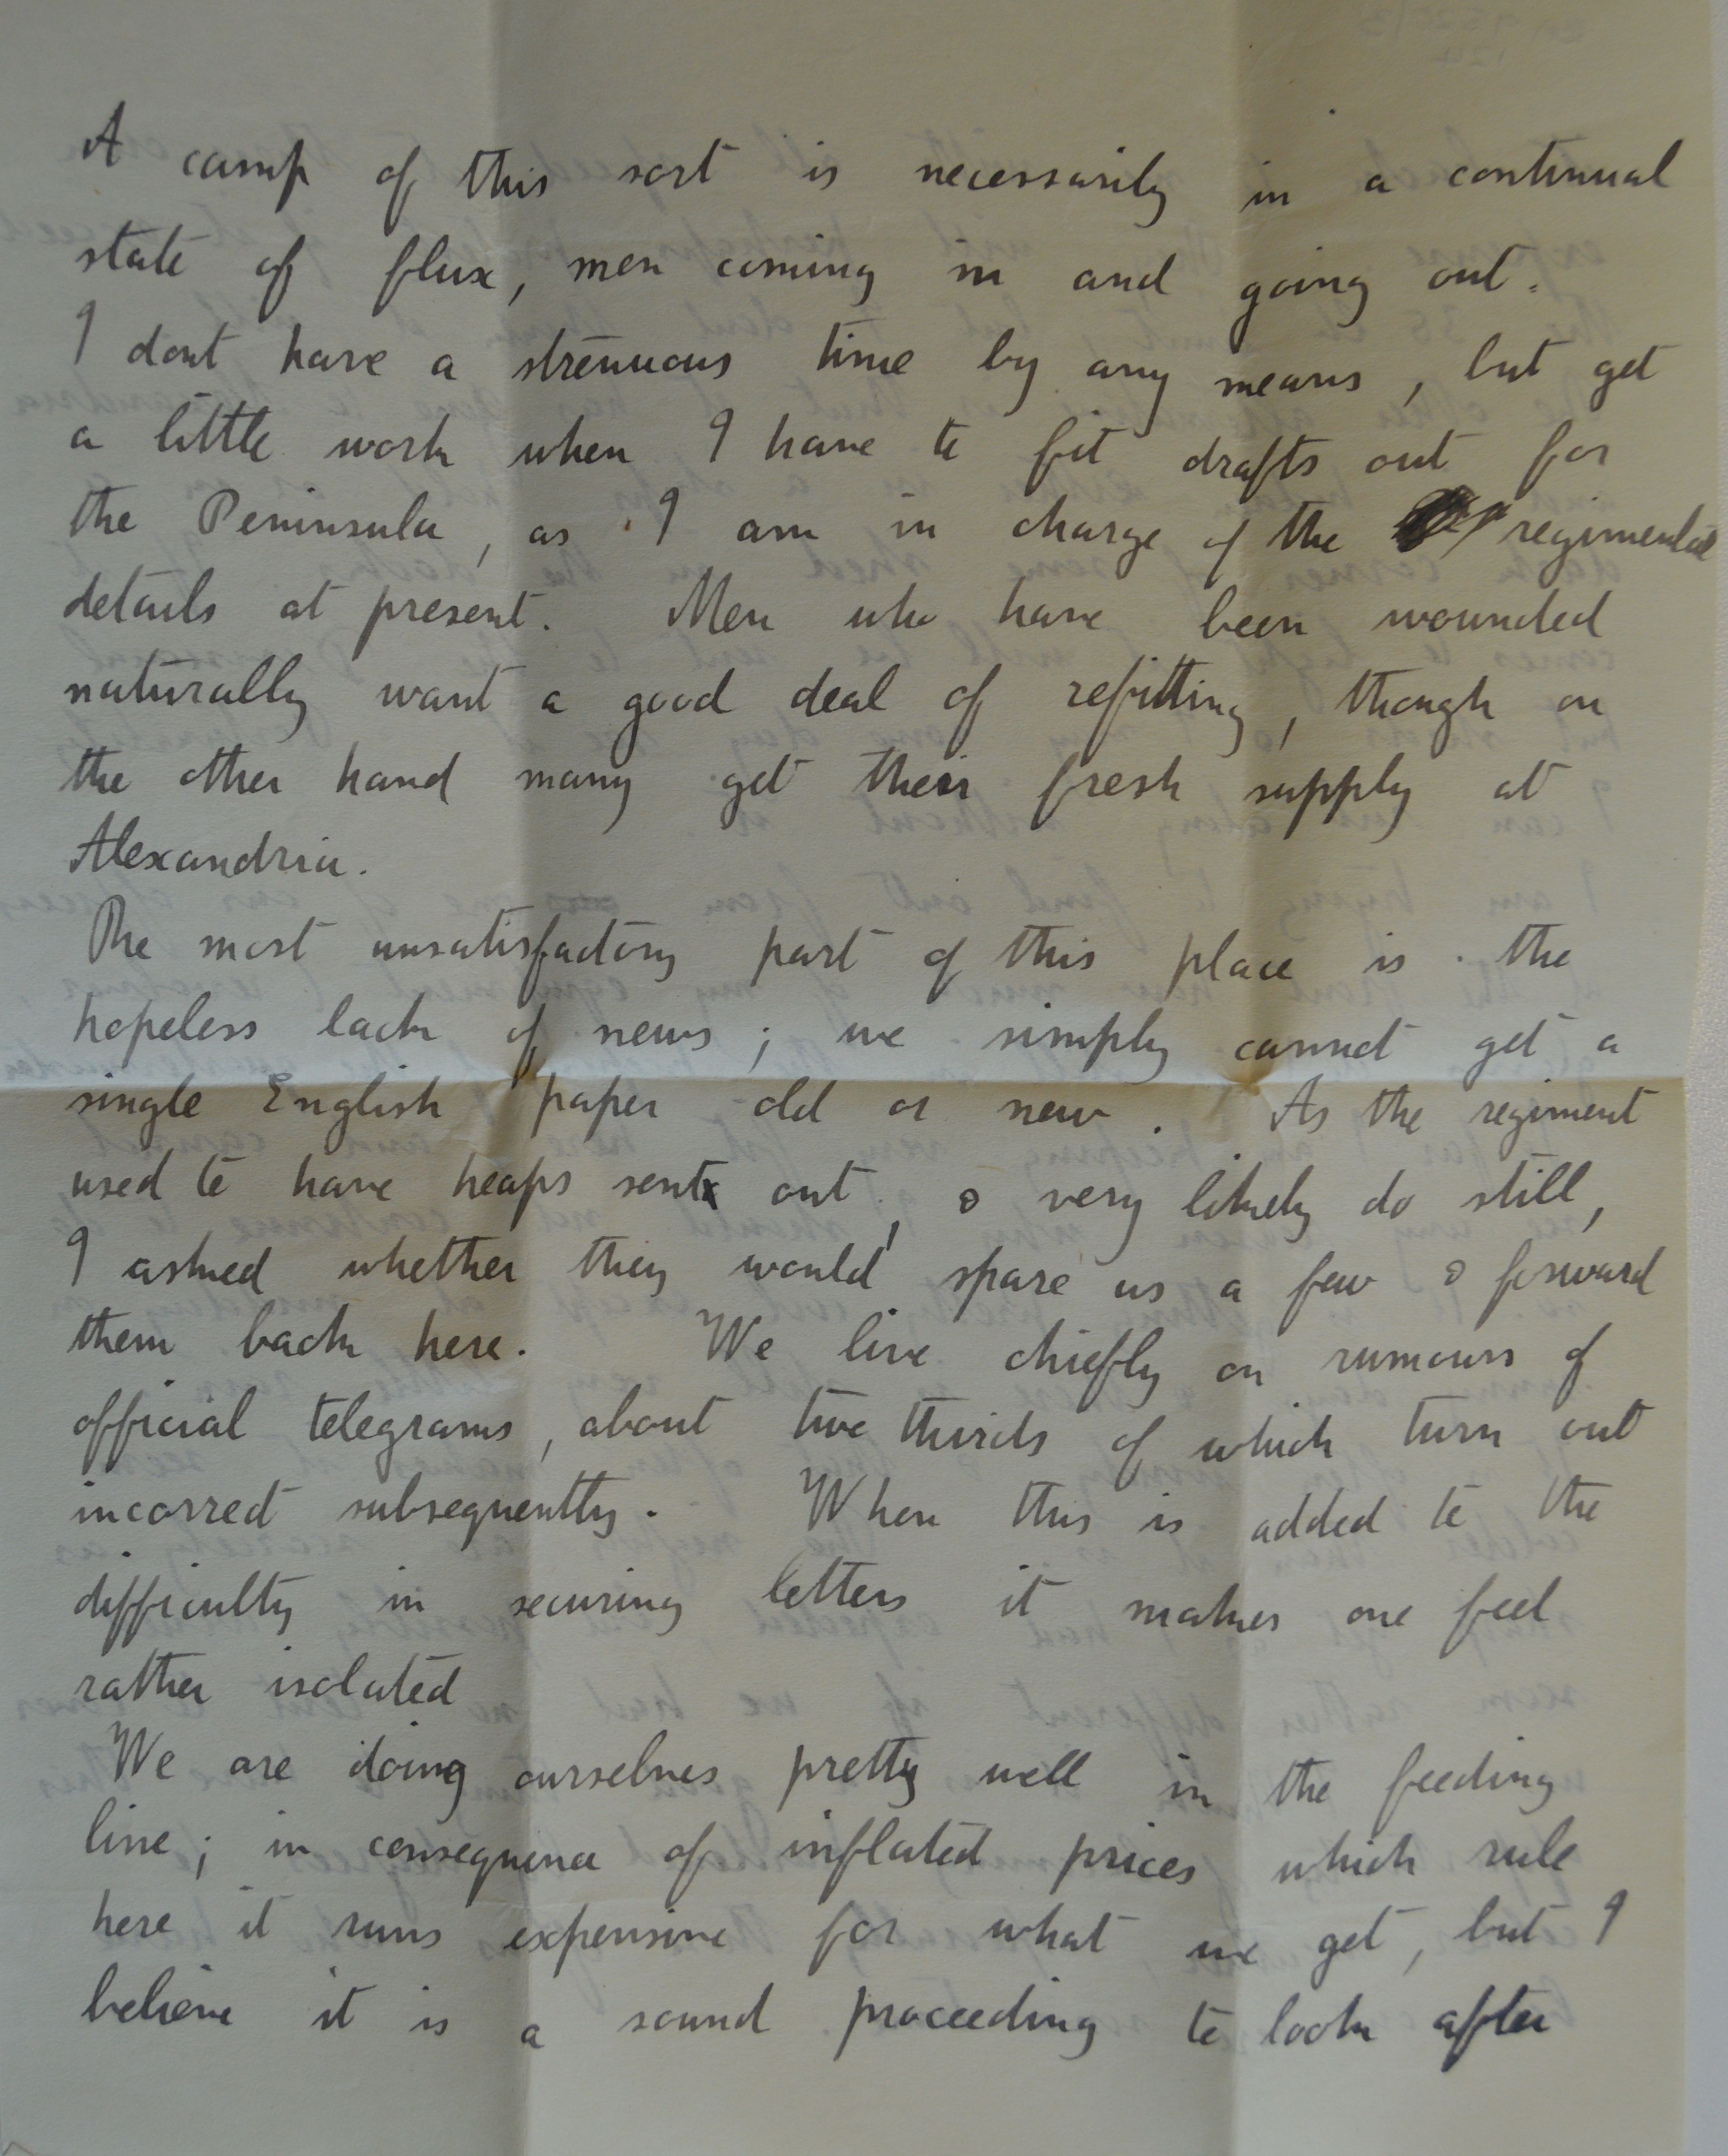 A camp of this sort is necessarily in a continual
state of flux, men coming in and going out.
I dont have a strenuous time by any means, but get
a little work when I have to fit drafts out for
the Peninsula, as I am in charge of the regimental
details at present. Men who have been wounded
naturally want a good deal of refitting, though on
the other hand many get their fresh supply at
Alexandria.
The most unsatisfactory part of this place is the
hopeless lack of news; we simply cannot get a
single English paper old or new. As the regiment
used to have heaps sent out, & very likely do still,
I asked whether they would spare us a few & forward
them back here. We live chiefly on rumours of
official telegrams, about two thirds of which turn out
incorrect subsequently. When this is added to the
difficulty in securing letters it makes one feel
rather isolated
We are doing ourselves pretty well in the feeding
line; in consequence of inflated prices which rule
here it runs expensive for what we get, but I
believe it is a sound proceeding to look after